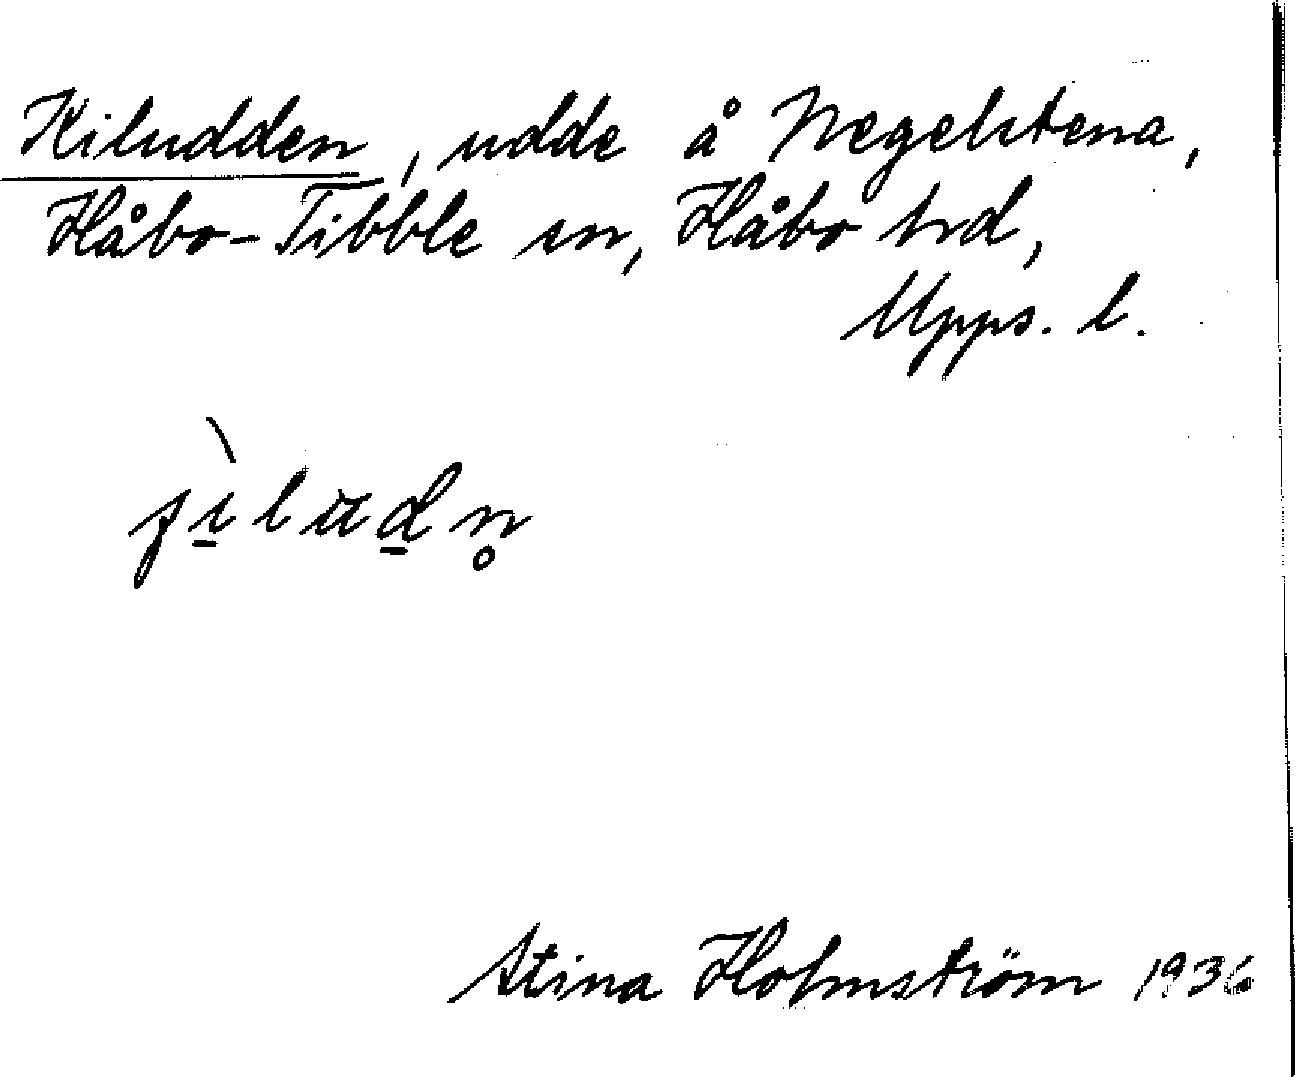 Kiludden, udde å Negelstena,
Håbo-Tibble sn, Håbo hd,
Upps. l.
Stina Holmström 1936